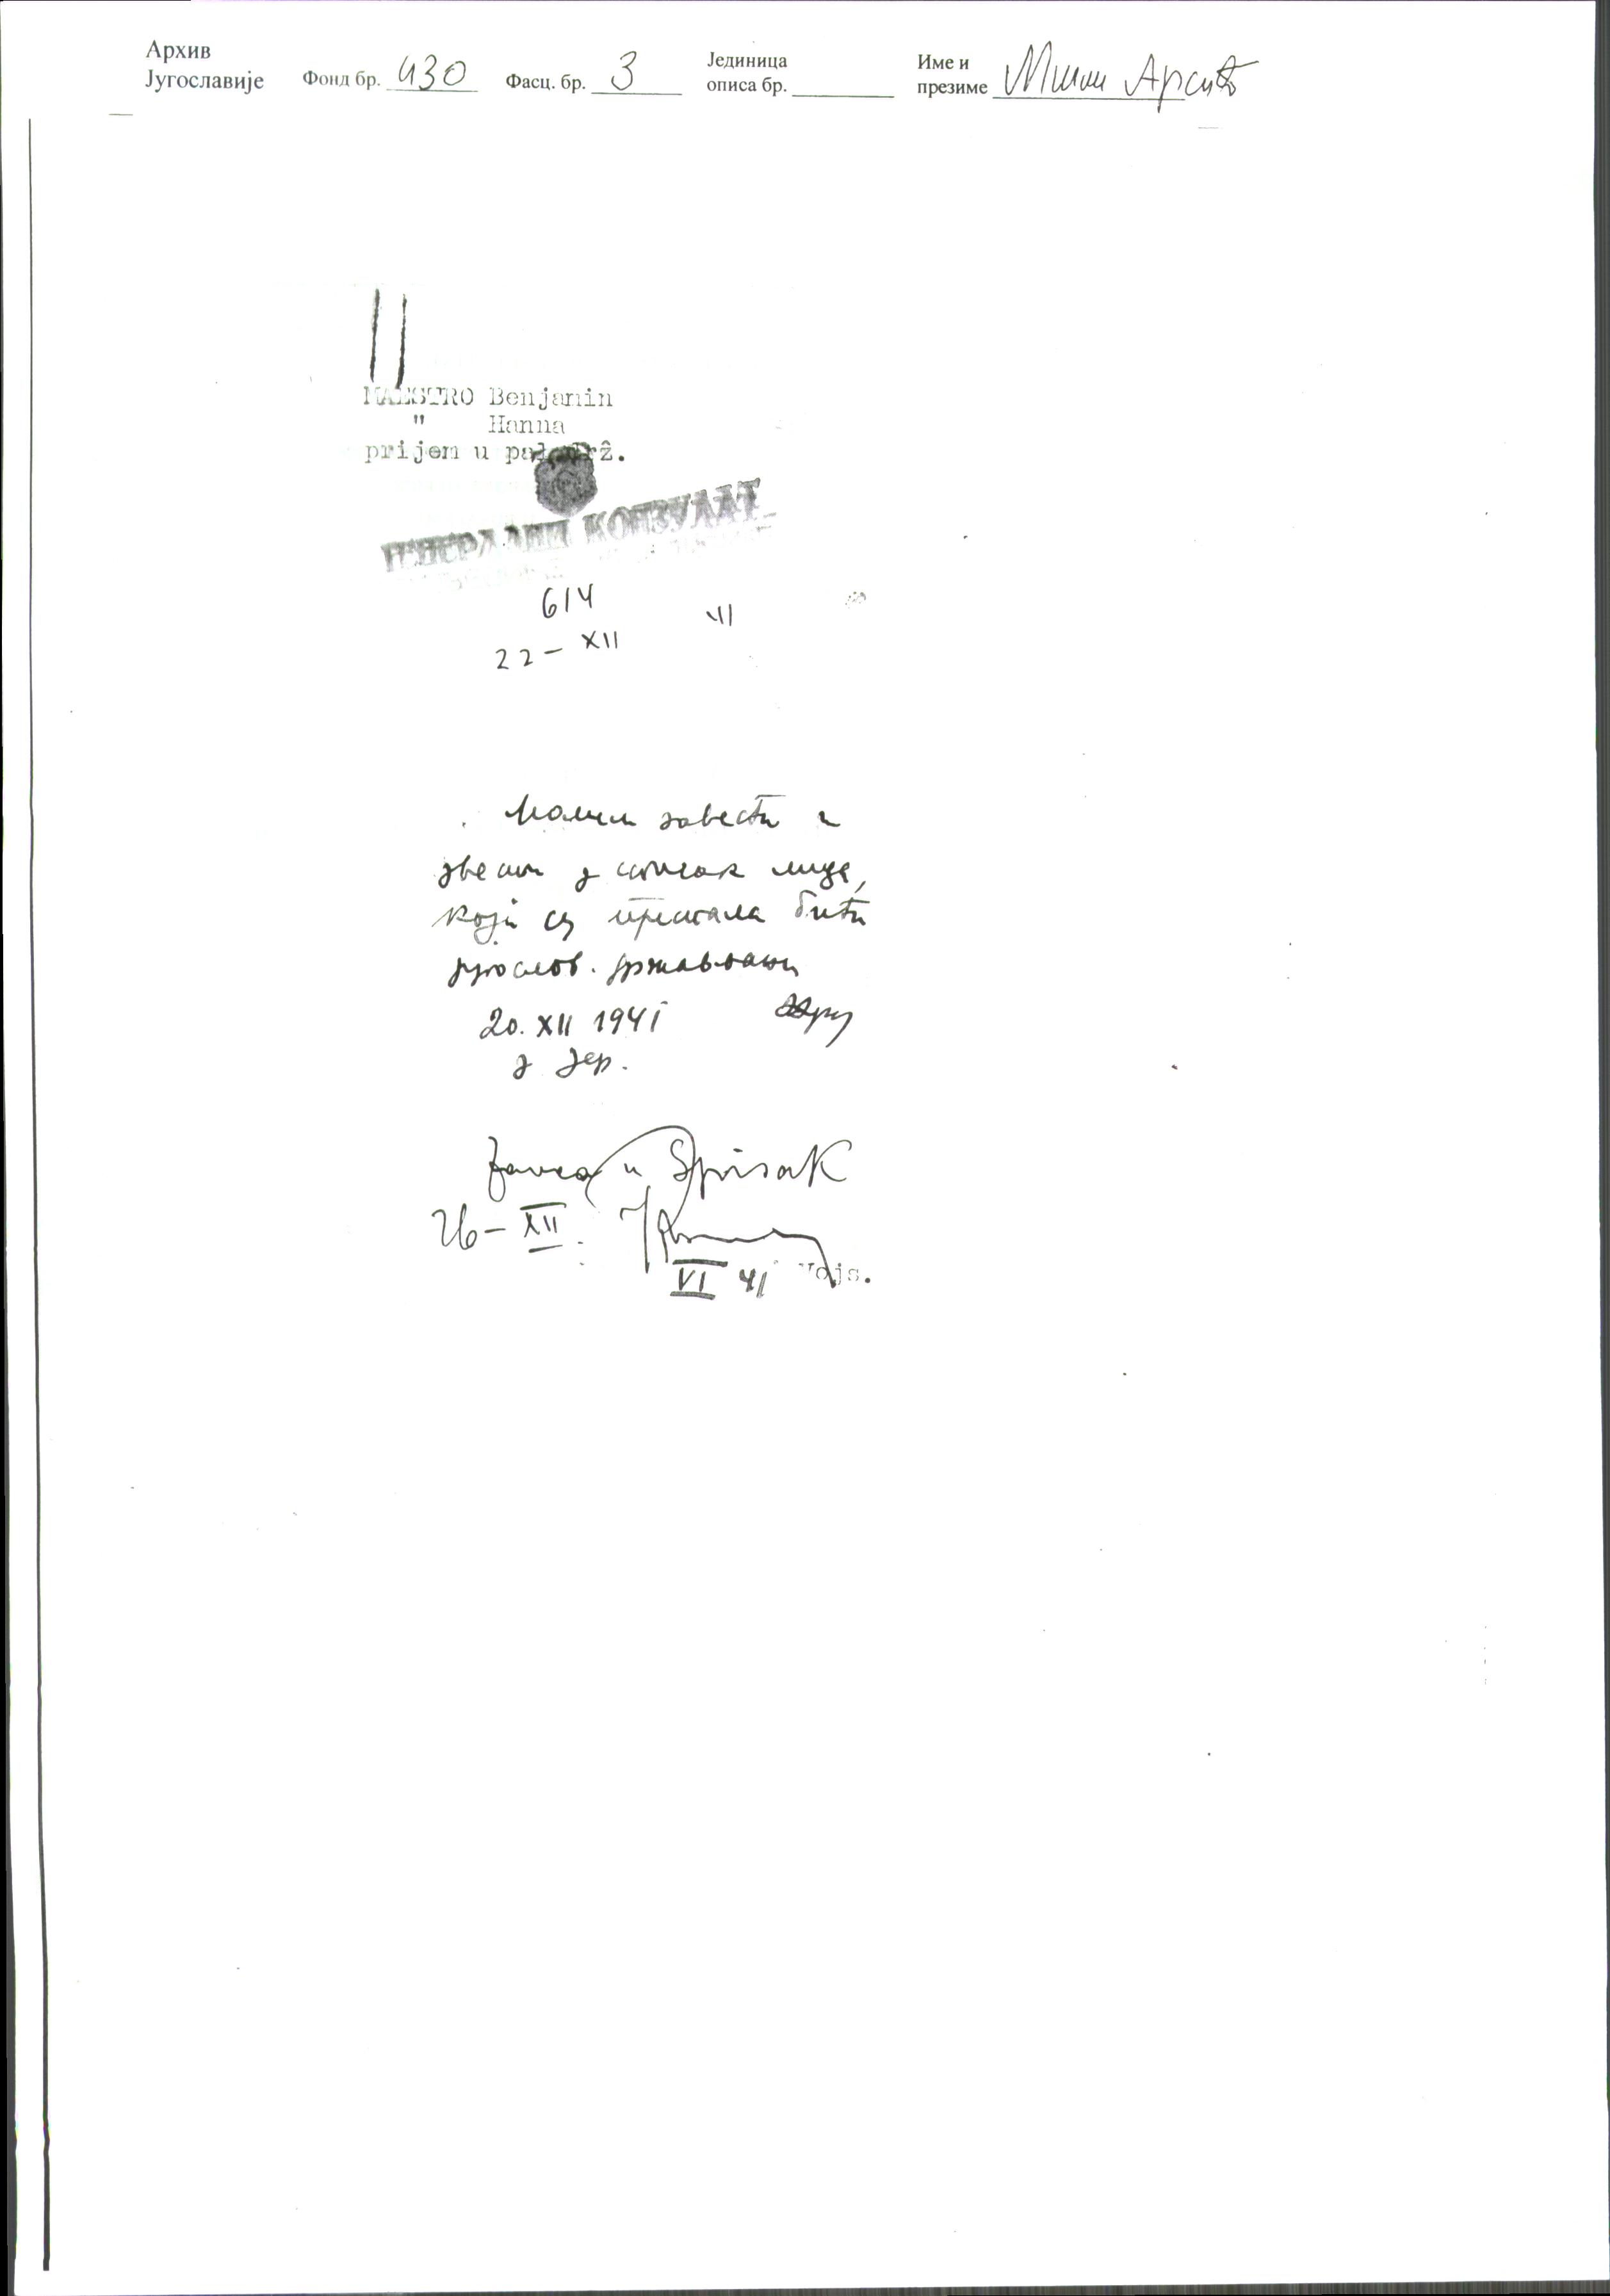 Архив
Југославије Фонд бр. 430 Фасц. бр. 3 Јединица описа бр. Име и презиме Арсић
MAESTRO Benjamin
" Hanna
prijem u pal. drž.
ГЕНЕРАЛНИ КОНЗУЛАТ
614
22 - XII 41
Молим завести и
увести у списак лица,
који су престала бити
југослов. држављани
20. XII 1941
у Јер.
и Spisak
26 - XII
VI 41 Vojs.